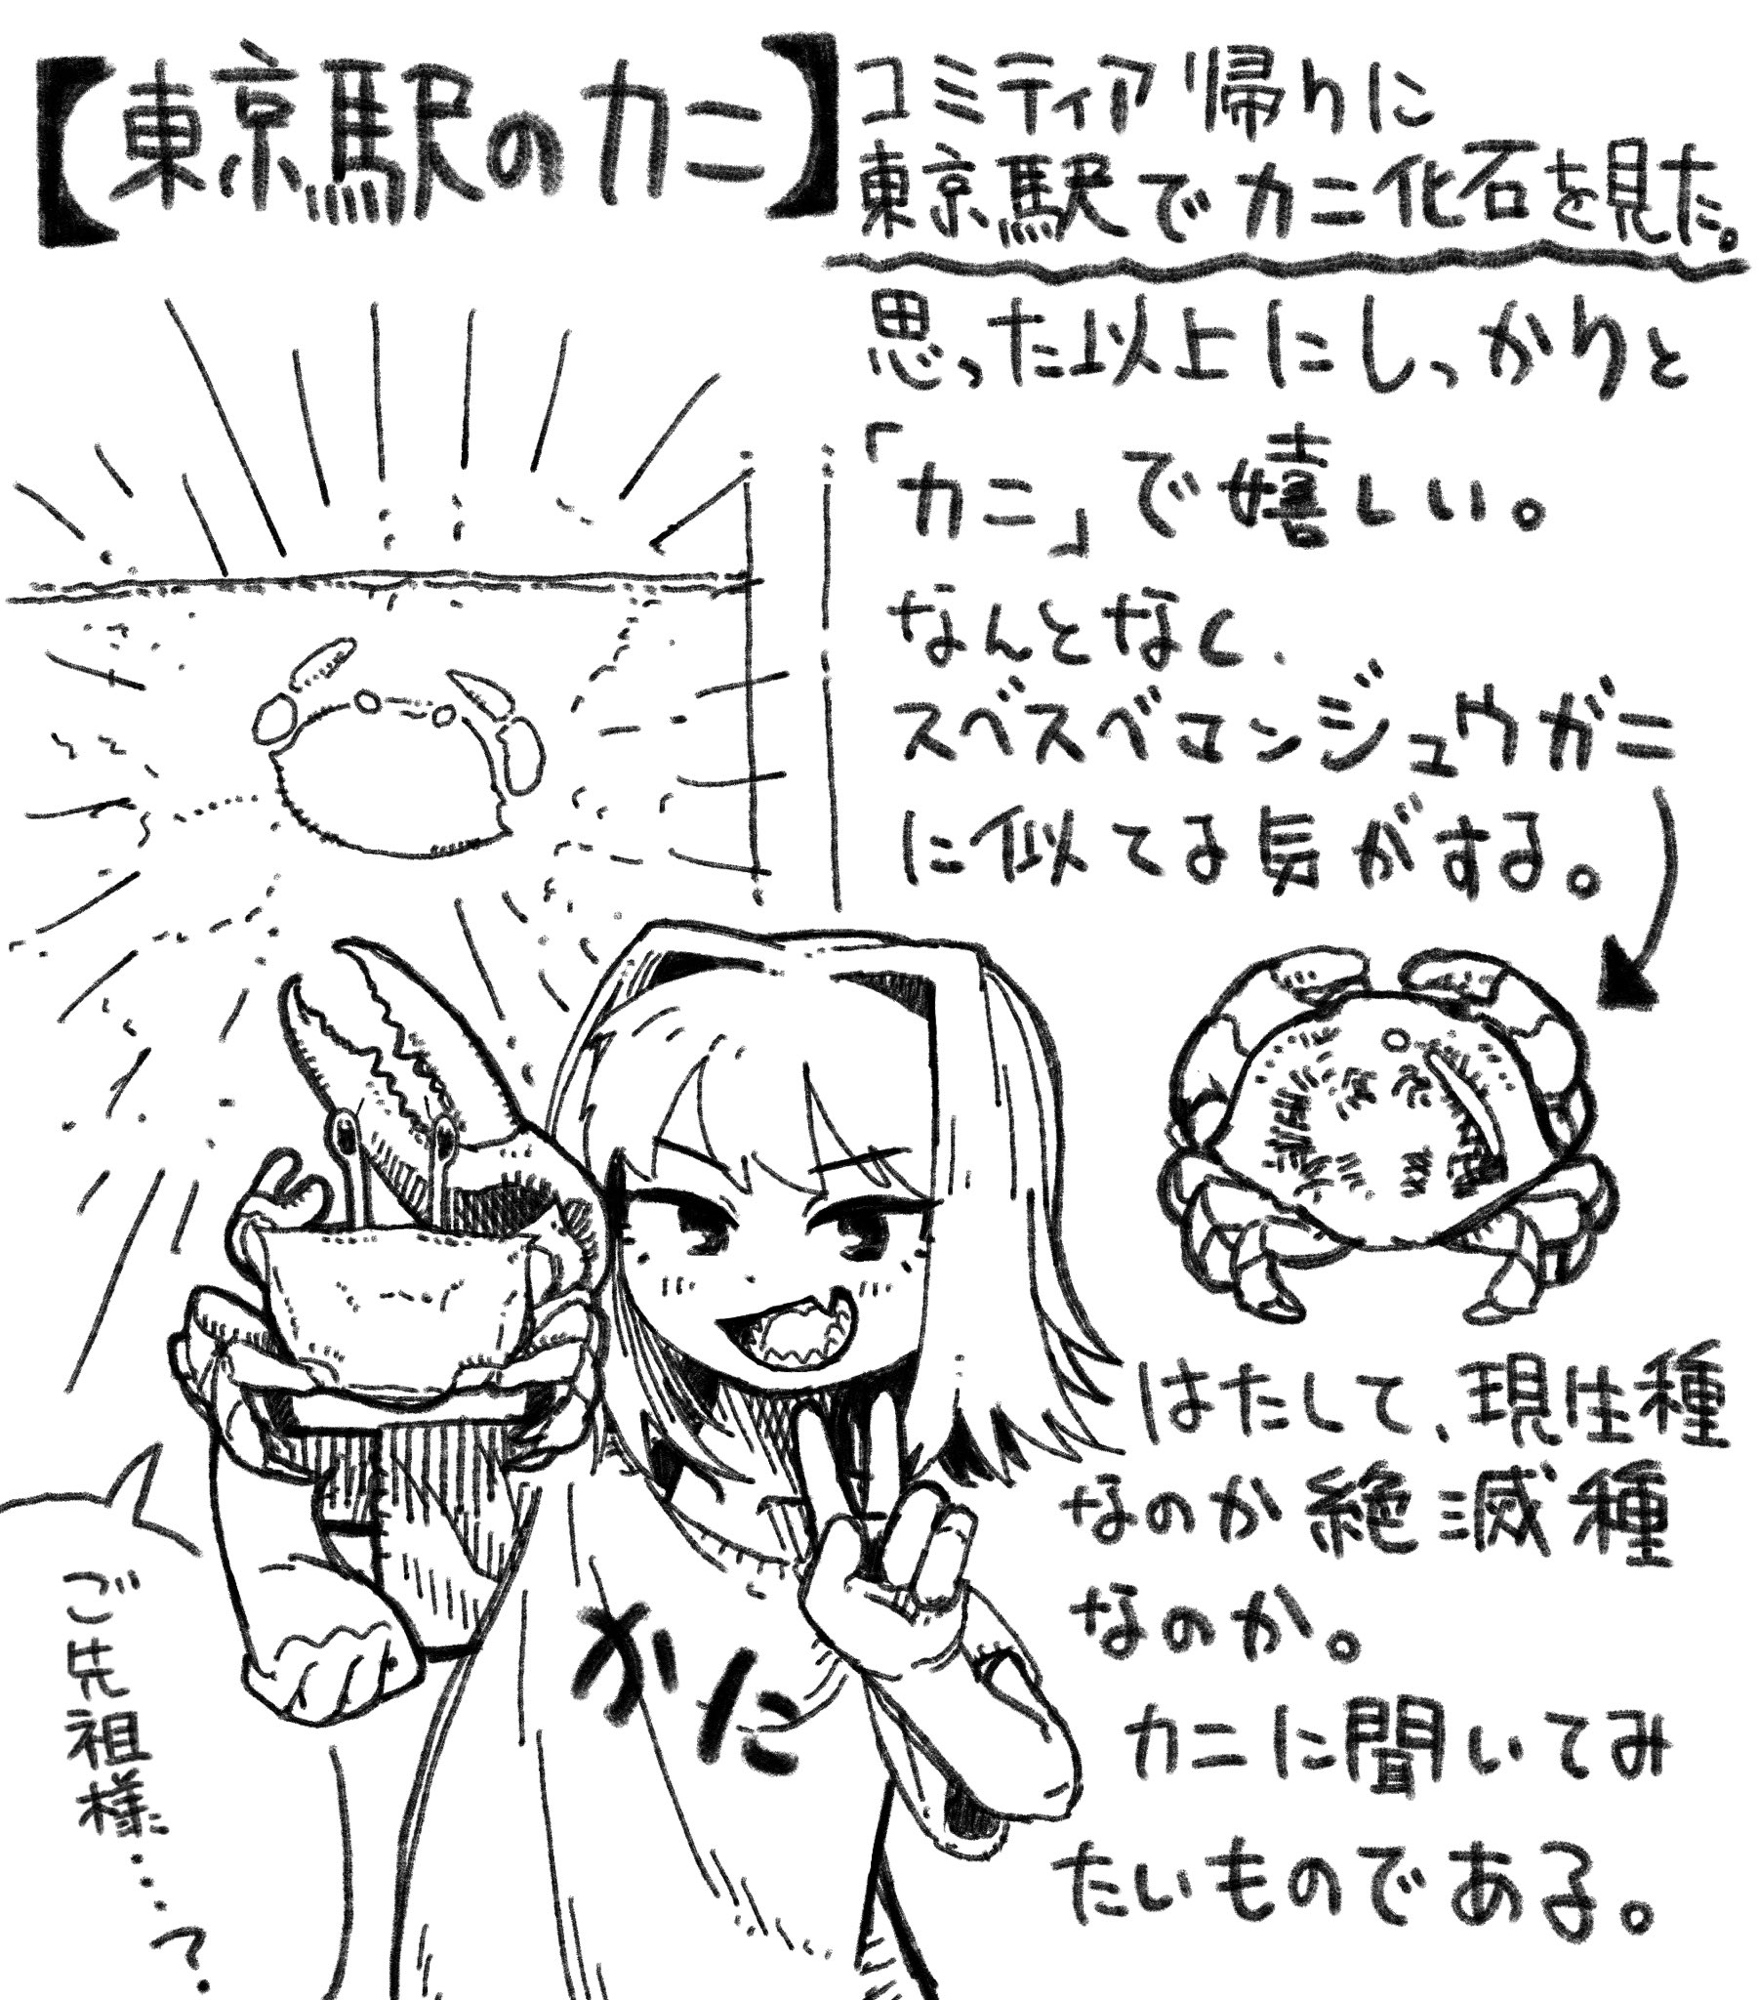 【東京駅のカニ】
コミティア帰りに
東京駅でカニ化石を見た。
思った以上にしっかりと
「カニ」で嬉しい。
なんとなく、
スベスベマンジュウガニ
に似てる気がする。
はたして、現生種
なのか絶滅種
なのか。
カニに聞いてみ
たいものである。
かに
ご先祖様…?